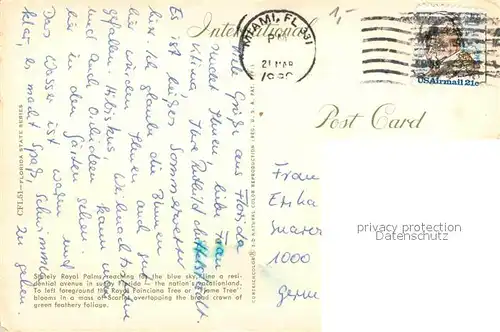 International
Post Card
MIAMI, FL 331
PM
21 MAR
US Airmail 21c
1,-
Viele Grüße aus Florida
sendet Ihnen, liebe Frau
Klima Ihre
Es ist heißes Sommerwetter
hier. Ich glaube die Blumen
hier würden Ihnen auch gut
gefallen. Hibiskus, Weihnachtssterne
und auch Orchideen kann man
hier in den Gärten sehen.
Das Wasser ist warm und
klar, es macht Spaß, Schwimmen
zu gehen.
Frau
Erika
1000
Germ
privacy protection
Datenschutz
Stately Royal Palms, reaching for the blue sky, line a resi-
dential avenue in sunny Florida — the nation's vacationland.
To left foreground the Royal Poinciana Tree or "Flame Tree"
blooms in a mass of Scarlet overtopping the broad crown of
green feathery foliage.
CFLS1—FLORIDA STATE SERIES